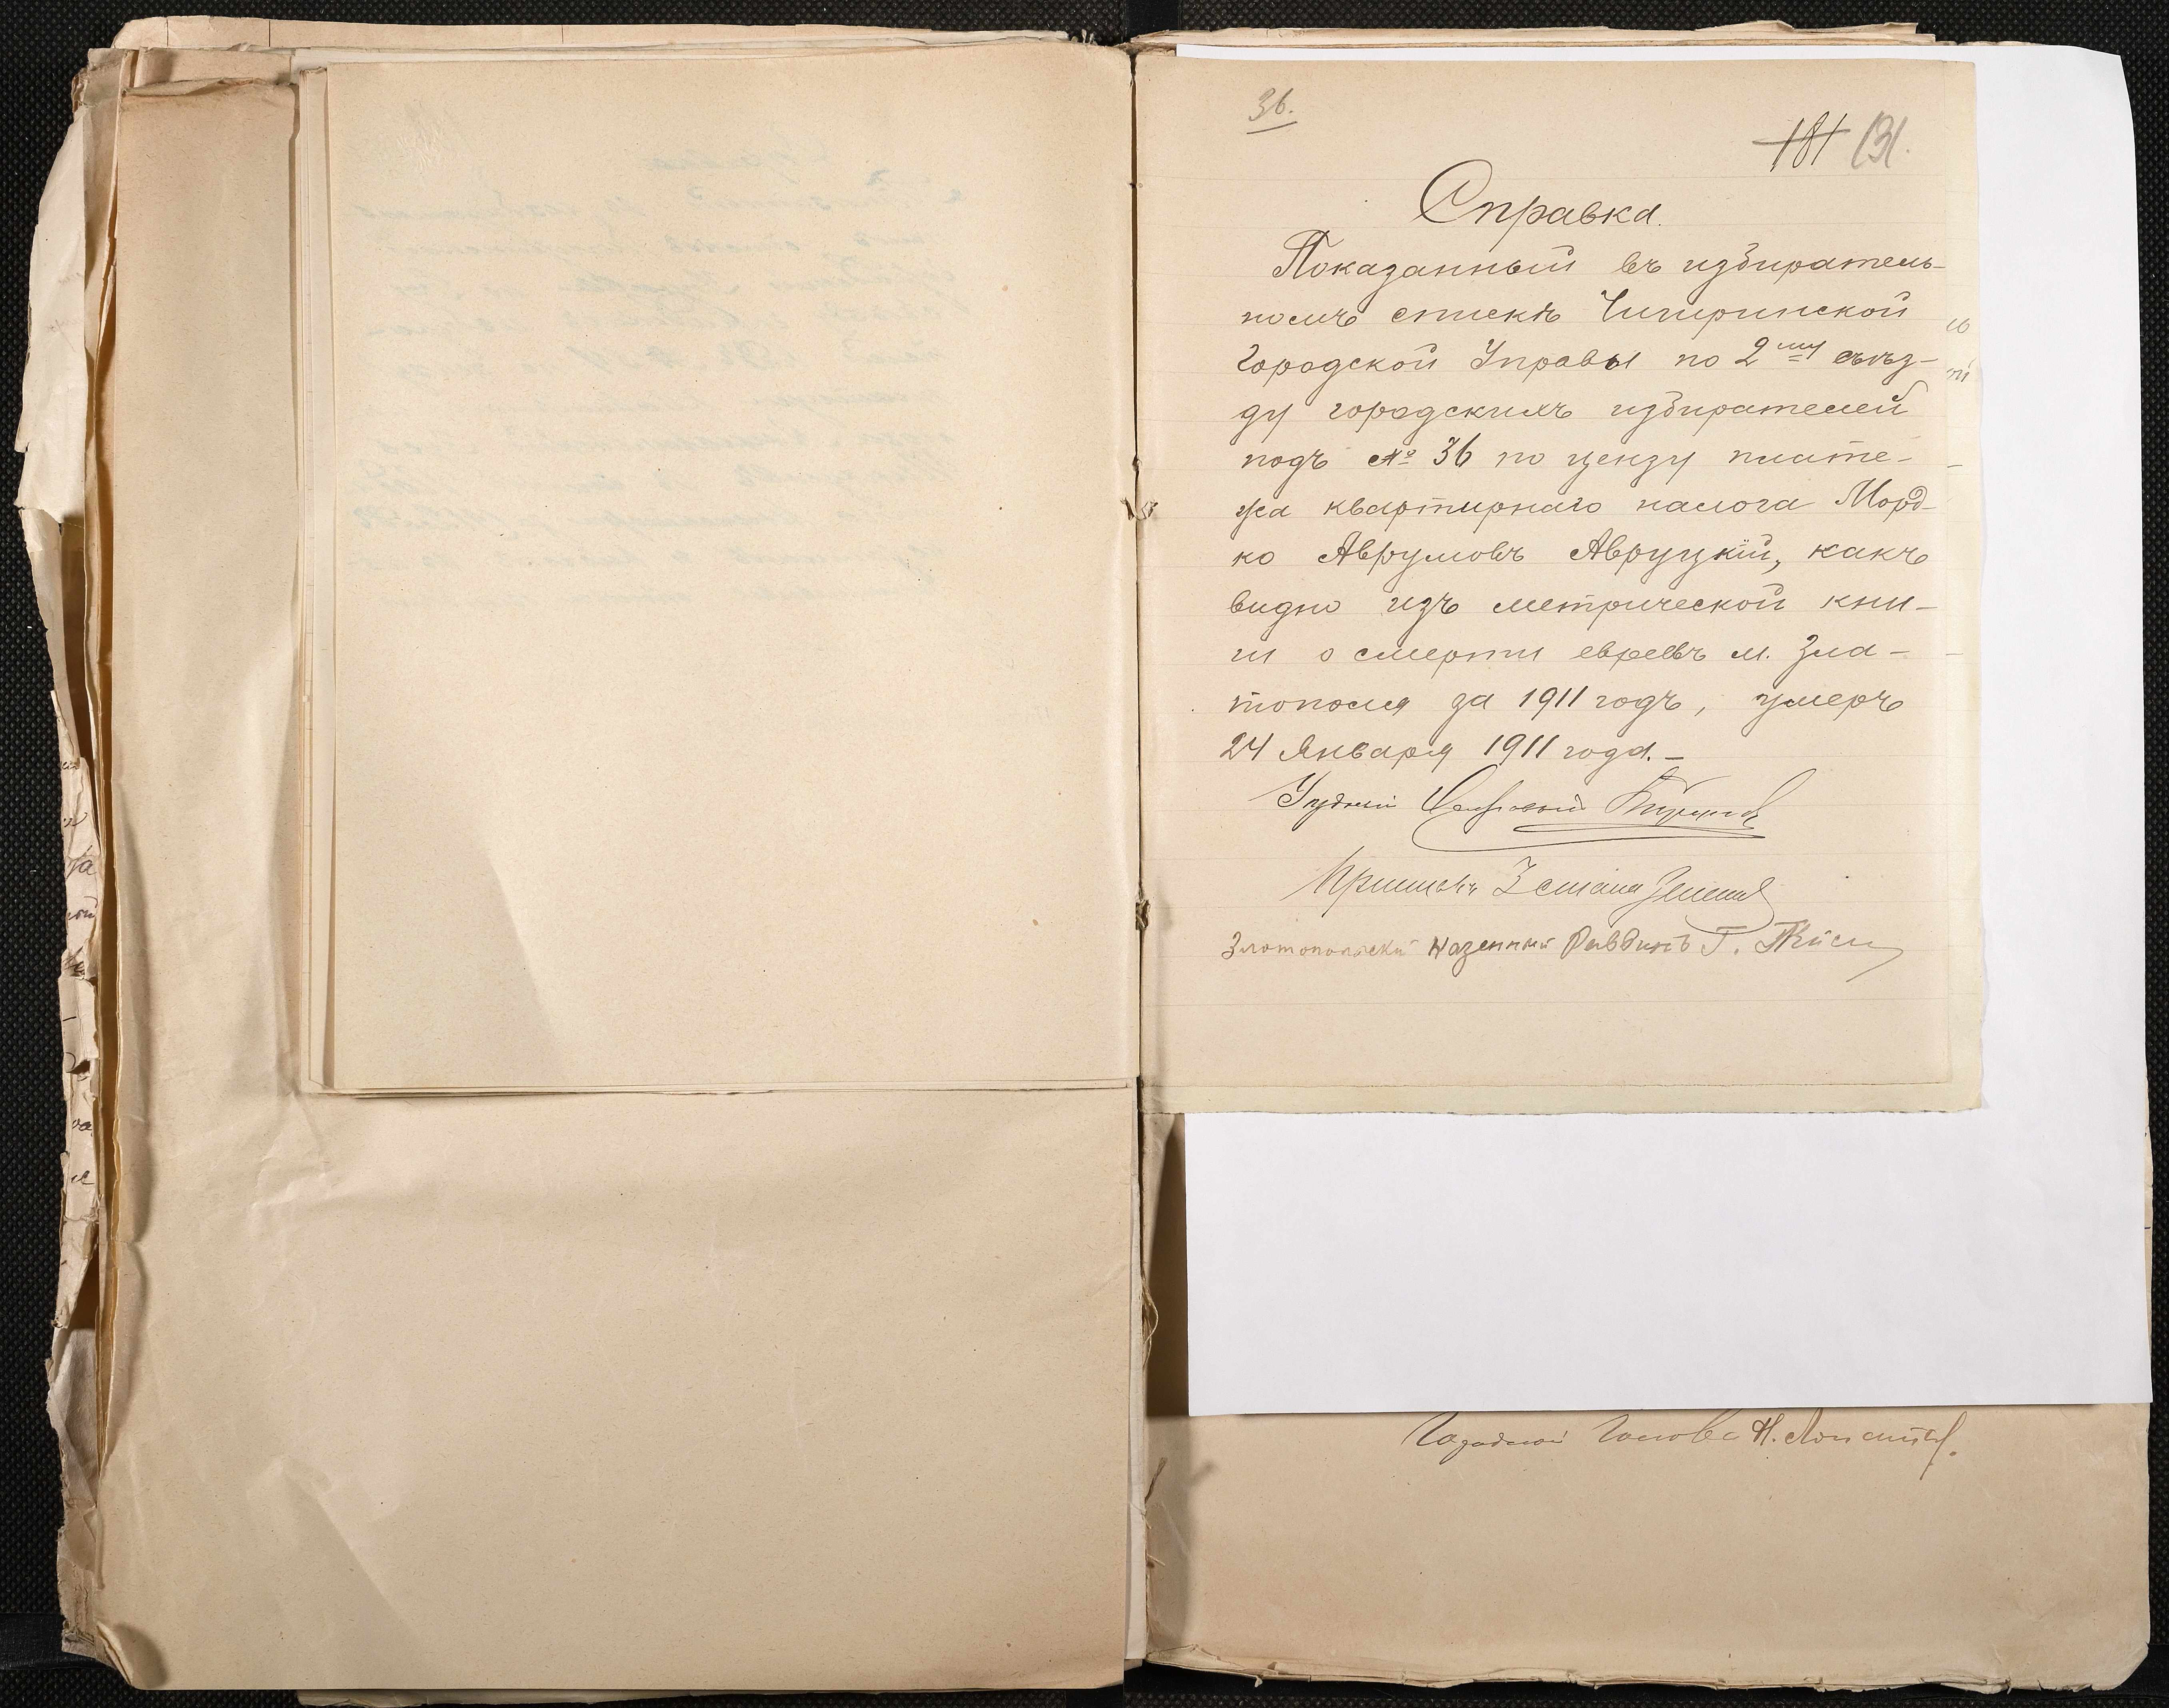 36.
181 131.
Справка.
Показанный въ избиратель-
номъ спискѣ Чигиринской
Городской Управы по 2му съѣз-
ду городскихъ избирателей
подъ № 36 по цензу плате-
жа квартирнаго налога Морд-
ко Аврумовъ Авруцкій, какъ
видно изъ метрической кни-
ги о смерти евреевъ м. Зла-
тополя за 1911 годъ, умеръ
24 Января 1911 года.-
Приставъ 3 стана
Златопольскій Казенный Раввинъ Г.
Городской Голова Н.